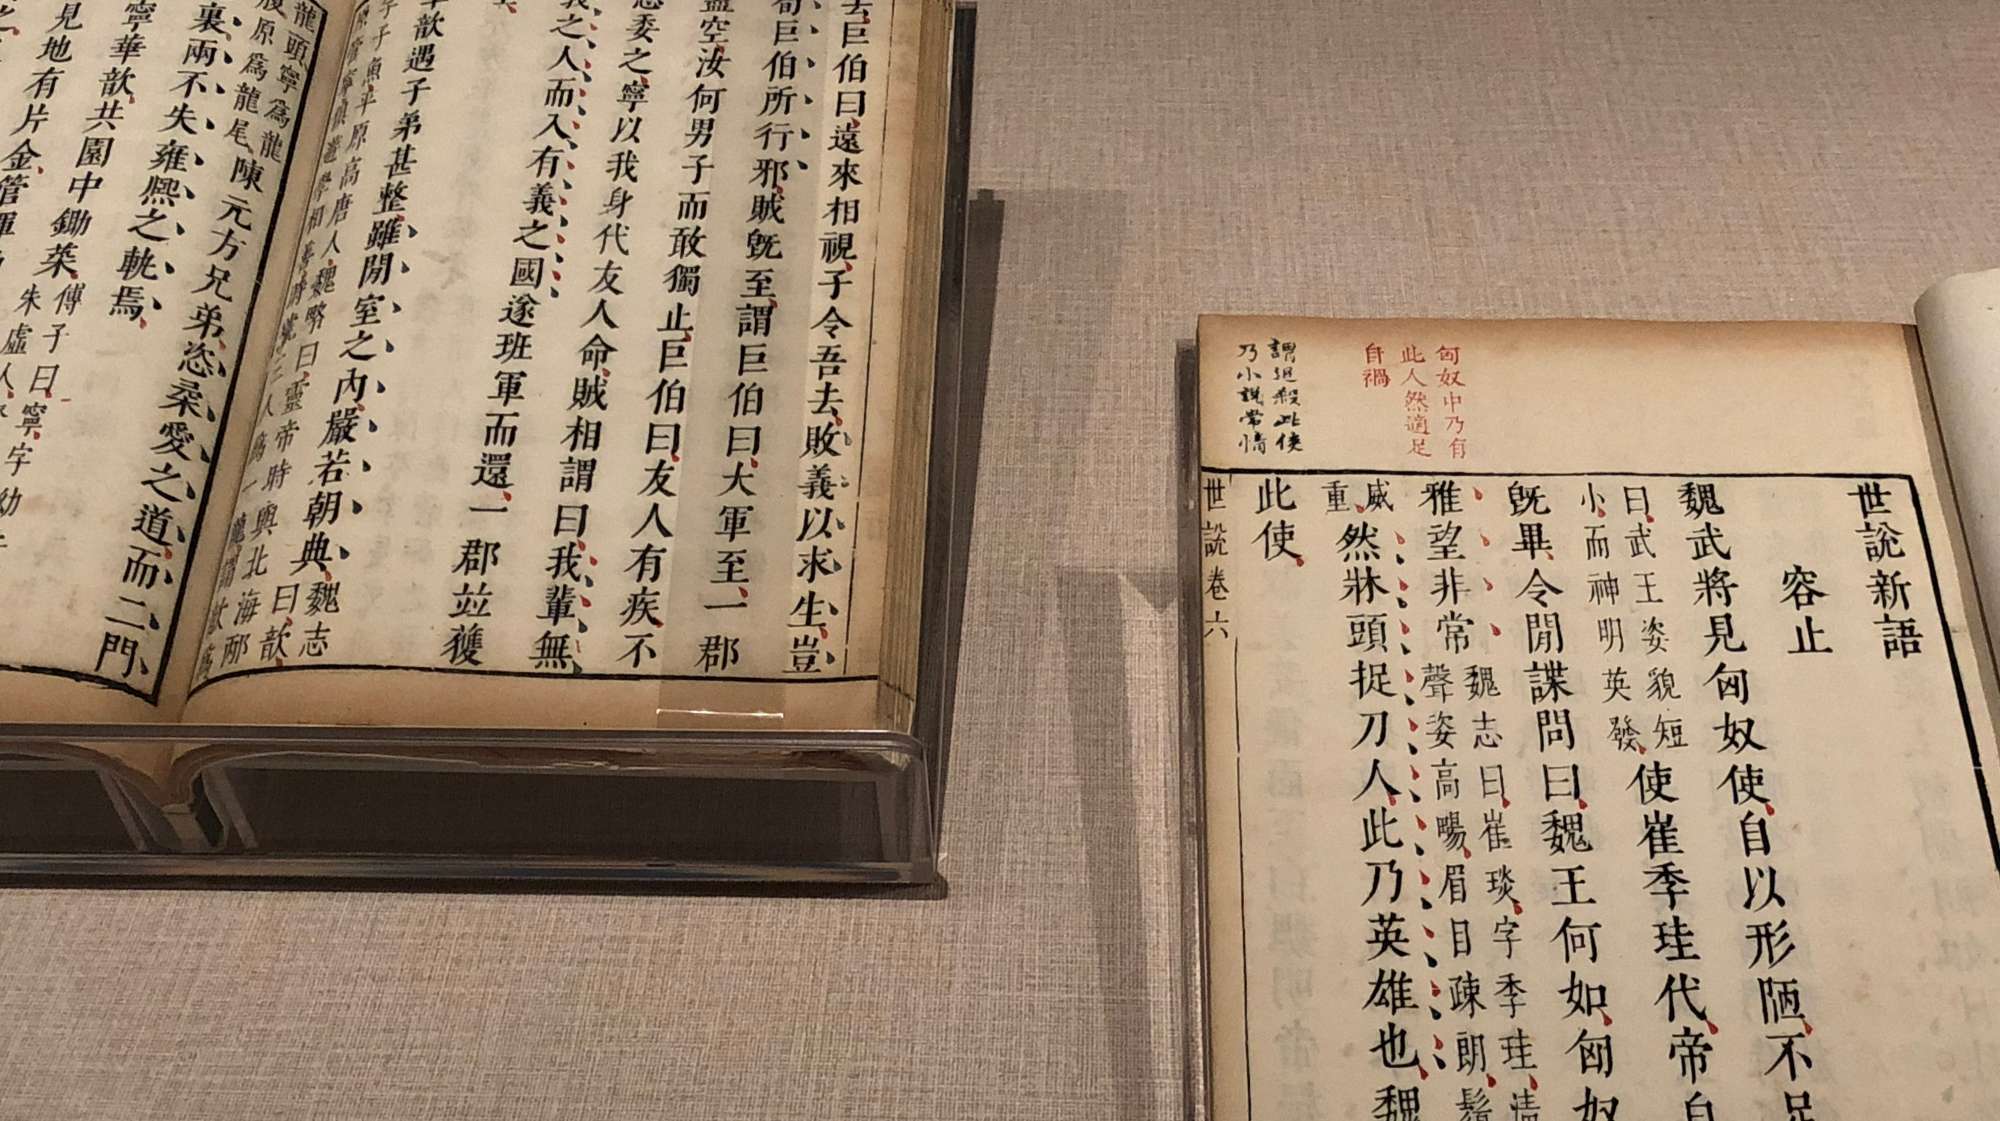 去巨伯曰遠來相視子令吾去敗義以求生豈
荀巨伯所行邪賊旣至謂巨伯曰大軍至一郡
盡空汝何男子而敢獨止巨伯曰友人有疾不
忍委之寧以我身代友人命賊相謂曰我輩無
義之人而入有義之國遂班軍而還一郡並獲
華歆遇子弟甚整雖閒室之內嚴若朝典魏志曰歆
字子魚平原高唐人魏略曰靈帝時與北海邴
龍頭寧爲龍
原爲龍尾陳元方兄弟恣柔愛之道而二門
裏兩不失雍熙之軌焉
寧華歆共園中鋤菜傅子曰寧字幼
朱虛人
見地有片金管
匈奴中乃有
此人然適足
自禍
謂追殺此使
乃小說常情
世說新語
容止
魏武將見匈奴使自以形陋不足
曰武王姿貌短
小而神明英發使崔季珪代帝自
旣畢令閒諜問曰魏王何如匈奴
雅望非常魏志曰崔琰字季珪淸
聲姿高暢眉目疎朗鬚
威
重然牀頭捉刀人此乃英雄也魏
此使
世說卷六